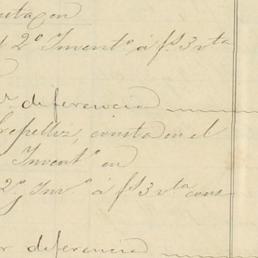 2º Inventº á fs 3 vta
r. diferencia
repelliz, consta en el
Inventº en
2º Invº á fs 3 vta cons
r diferencia